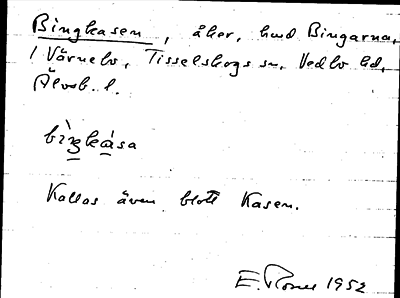 Bingkasen, åker, hmd Bingarna,
1 Värnebo, Tisselskogs sn, Vedbo hd,
Älvsb. l.
bìŋkása
Kallas även blott Kasen.
E. 1952